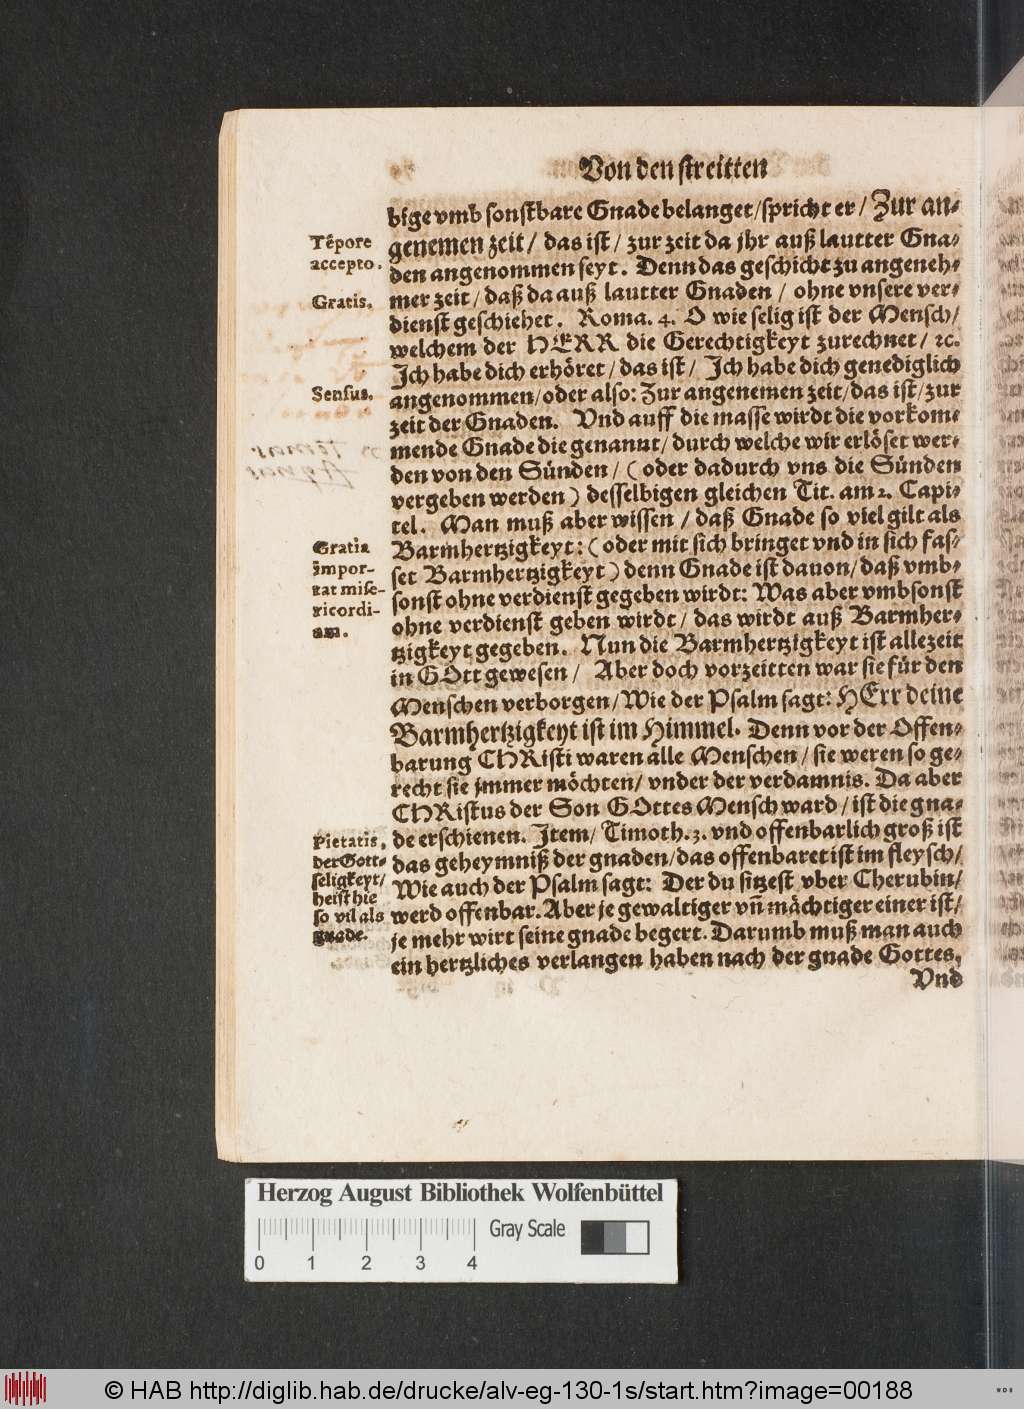 Von den streitten
bige vmb sonstbare Gnade belanget/ spricht er/ Zur an-
genemen zeit/ das ist/ zur zeit da jhr auß lautter Gna-
den angenommen seyt. Denn das geschicht zu angeneh-
mer zeit/ daß da auß lautter Gnaden / ohne vnsere ver-
dienst geschiehet. Roma. 4. O wie selig ist der Mensch/
welchem der HERR die Gerechtigkeyt zurechnet/ ꝛc.
Jch habe dich erhöret/ das ist/ Jch habe dich genediglich
angenommen/ oder also: Zur angenemen zeit/ das ist/ zur
zeit der Gnaden. Vnd auff die masse wirdt die vorkom-
mende Gnade die genannt/ durch welche wir erlöset wer-
den von den Sünden/ (oder dadurch vns die Sünden
vergeben werden) desselbigen gleichen Tit. am 2. Capi-
tel. Man muß aber wissen / daß Gnade so viel gilt als
Barmhertzigkeyt: (oder mit sich bringet vnd in sich fas-
set Barmhertzigkeyt) denn Gnade ist dauon/ daß vmb-
sonst ohne verdienst gegeben wirdt: Was aber vmbsonst
ohne verdienst geben wirdt/ das wirdt auß Barmher-
tzigkeyt gegeben. Nun die Barmhertzigkeyt ist allezeit
in GOtt gewesen / Aber doch vorzeitten war sie für den
Menschen verborgen/ Wie der Psalm sagt: HErr deine
Barmhertzigkeyt ist im Himmel. Denn vor der Offen-
barung CHRisti waren alle Menschen / sie weren so ge-
recht sie jmmer möchten/ vnder der verdamnis. Da aber
CHRistus der Son GOttes Mensch ward / ist die gna-
de erschienen. Jtem/ Timoth. 3. vnd offenbarlich groß ist
das geheymniß der gnaden/ das offenbaret ist im fleysch/
Wie auch der Psalm sagt: Der du sitzest vber Cherubin/
werd offenbar. Aber je gewaltiger vñ mächtiger einer ist/
je mehr wirt seine gnade begert. Darumb muß man auch
ein hertzliches verlangen haben nach der gnade Gottes,
Vnd
Tẽpore
accepto.
Gratis.
Sensus.
Gratia
impor-
tat mise-
ricordi-
am.
Pietatis,
der Gott-
seligkeyt/
heist hie
so vil als
gnade.
Herzog August Bibliothek Wolfenbüttel
Gray Scale
0 1 2 3 4
© HAB http://diglib.hab.de/drucke/alv-eg-130-1s/start.htm?image=00188